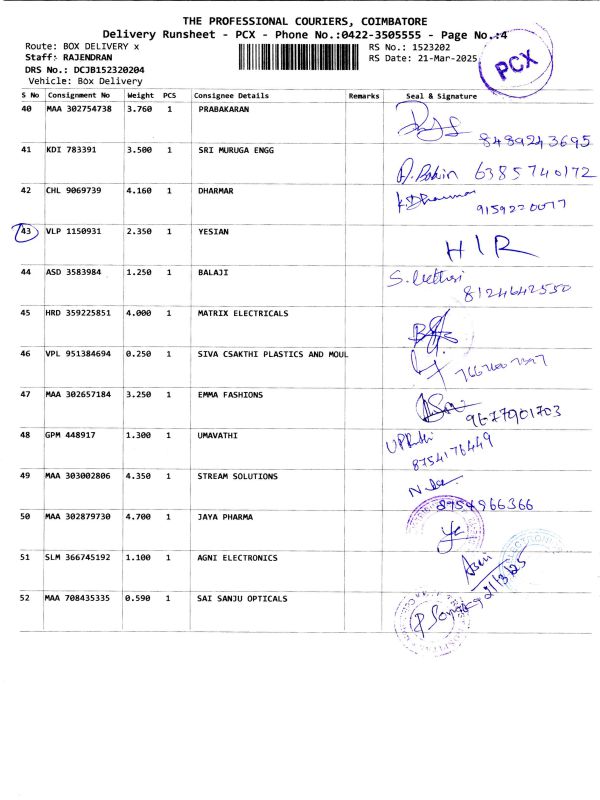 THE PROFESSIONAL COURIERS, COIMBATORE
Delivery Runsheet - PCX - Phone No.:0422-3505555 - Page No.:4
Route: BOX DELIVERY x
RS No.: 1523202
Staff: RAJENDRAN
RS Date: 21-Mar-2025
PCX
DRS No.: DCJB152320204
Vehicle: Box Delivery
S No Consignment No Weight PCS Consignee Details Remarks Seal & Signature
40 MAA 302754738 3.760 1 PRABAKARAN
8489243695
41 KDI 783391 3.500 1 SRI MURUGA ENGG
6385740172
42 CHL 9069739 4.160 1 DHARMAR
K. Dharmar
9159220077
43 VLP 1150931 2.350 1 YESIAN
H I R
44 ASD 3583984 1.250 1 BALAJI
8124642550
45 HRD 359225851 4.000 1 MATRIX ELECTRICALS
46 VPL 951384694 0.250 1 SIVA CSAKTHI PLASTICS AND MOUL
47 MAA 302657184 3.250 1 EMMA FASHIONS
9677901703
48 GPM 448917 1.300 1 UMAVATHI
8754176449
49 MAA 303002806 4.350 1 STREAM SOLUTIONS
8754966366
50 MAA 302879730 4.700 1 JAYA PHARMA
51 SLM 366745192 1.100 1 AGNI ELECTRONICS
21/3/25
52 MAA 708435335 0.590 1 SAI SANJU OPTICALS